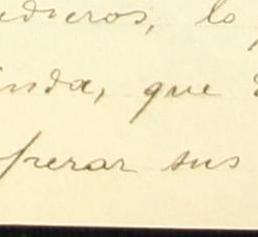 edieros, lo
inda, que
perar sus